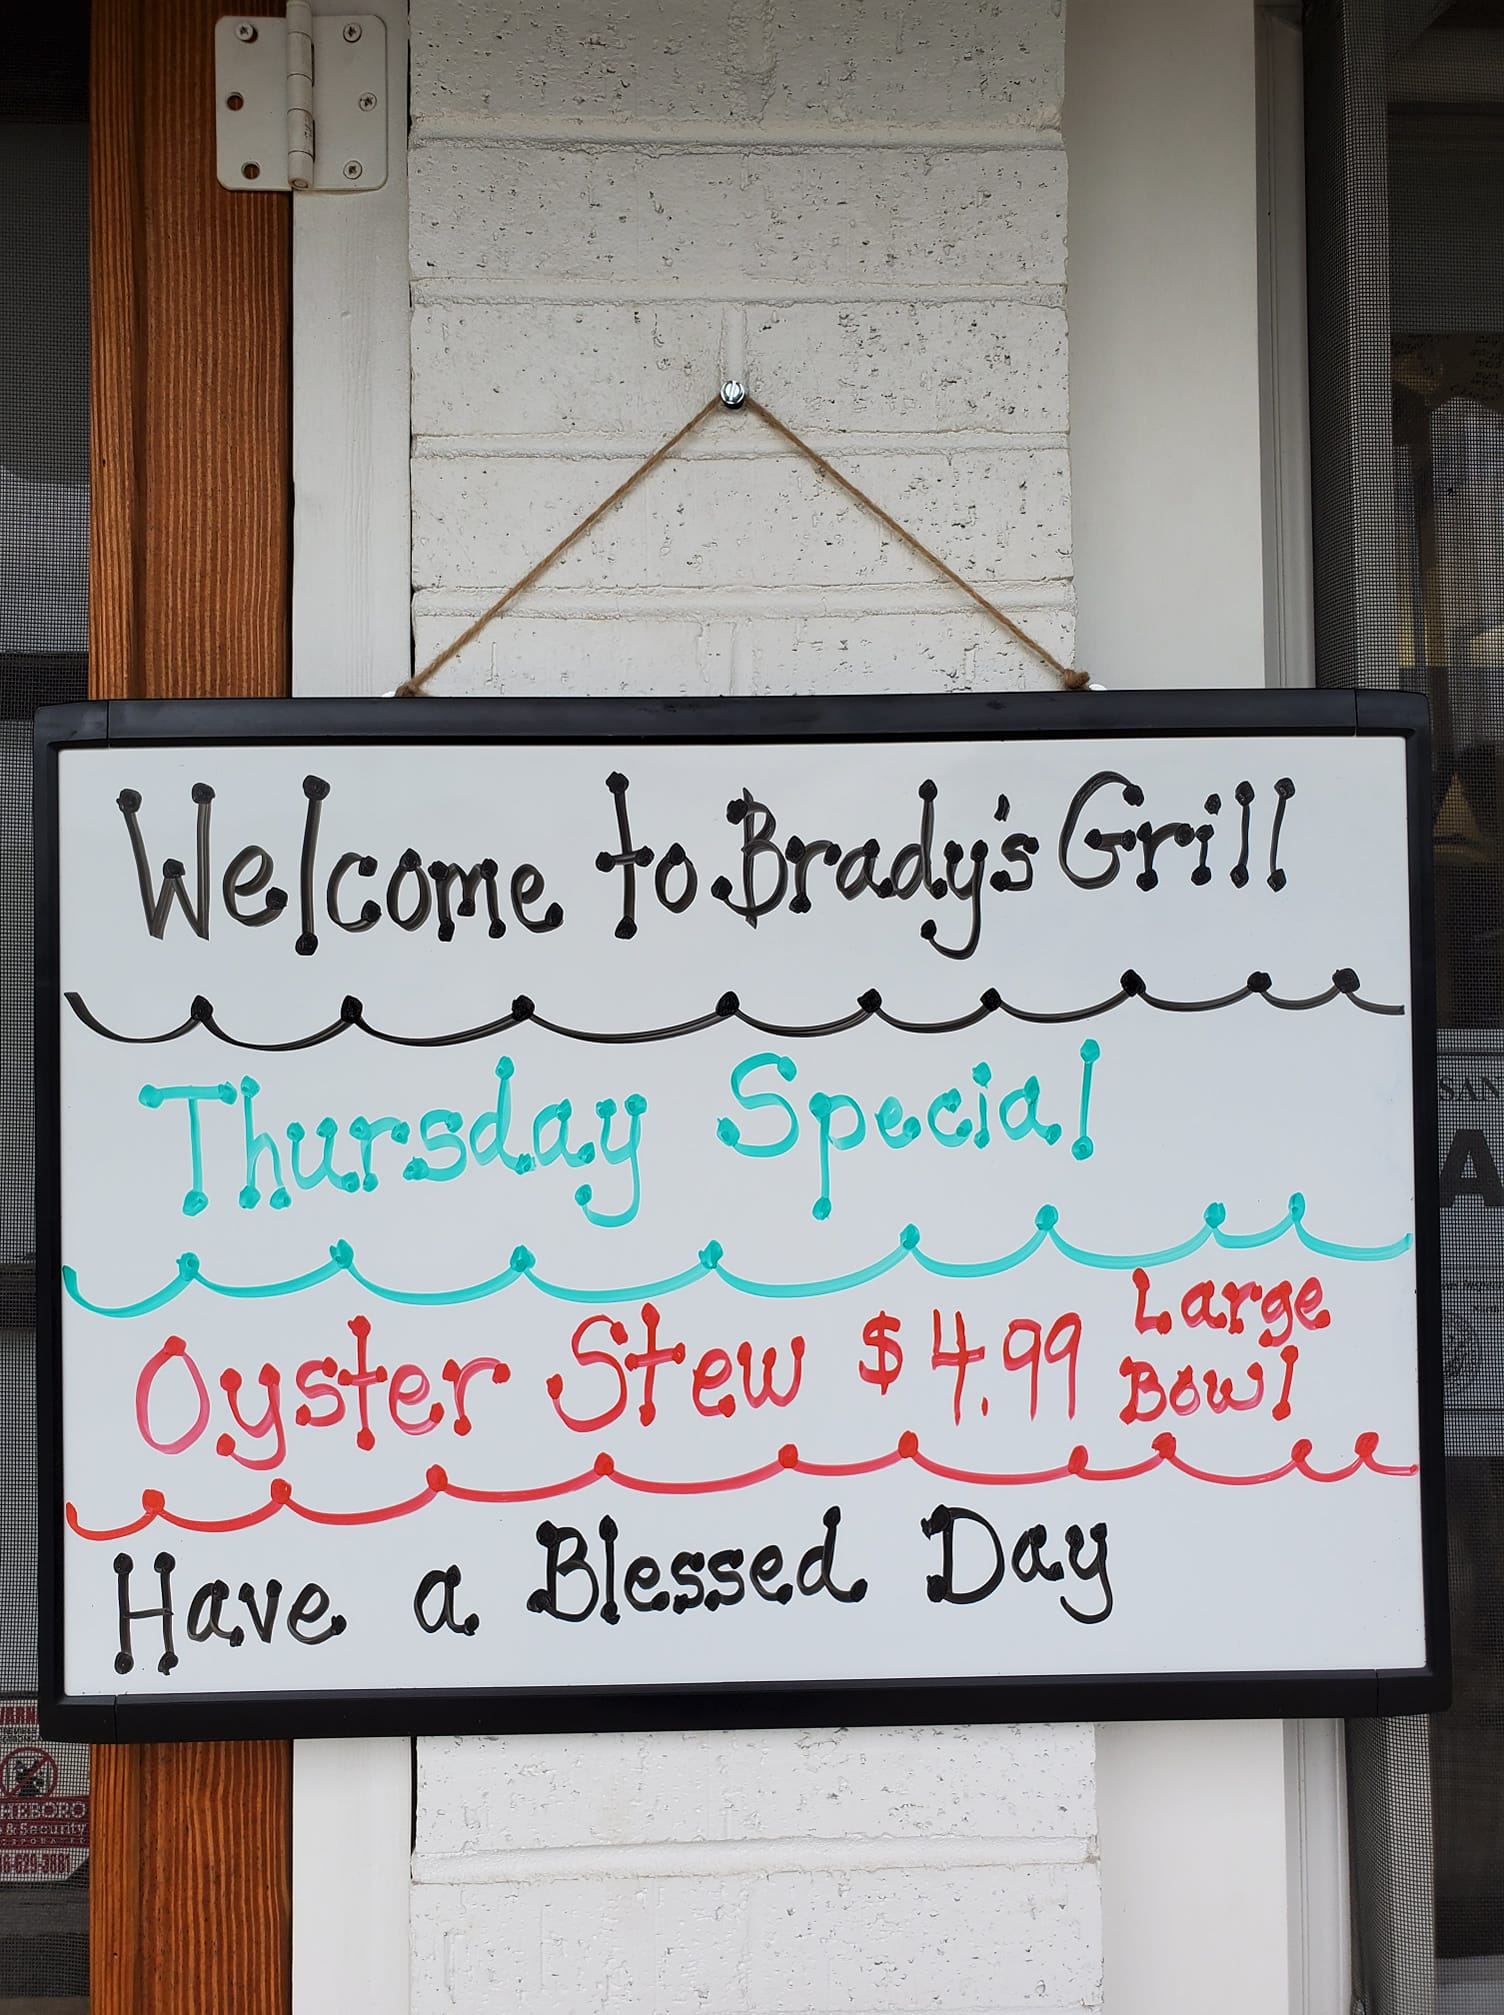 Welcome to Brady's Grill
Thursday Special
Oyster Stew $4.99 Large Bowl
Have a Blessed Day
SAN
A
HEBORO
& Security